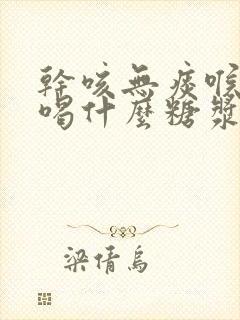 幹咳無痰喉
喝什麼糖漿
梁倩烏